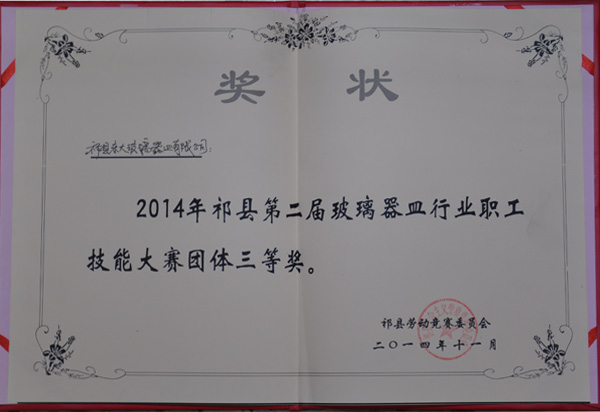 奖状
祁县东大玻璃器皿有限公司：
2014年祁县第二届玻璃器皿行业职工
技能大赛团体三等奖。
祁县劳动竞赛委员会
二〇一四年十一月